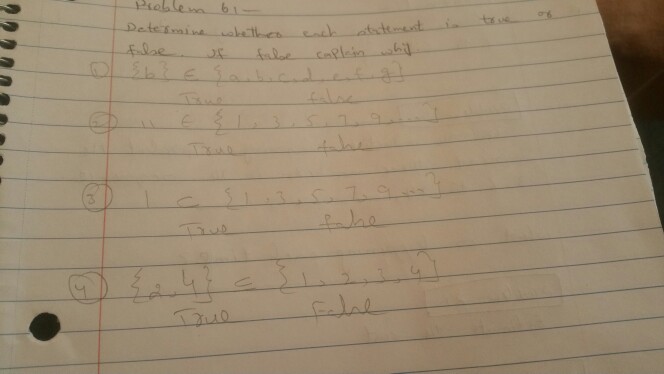 Problem 6:-
Determine whether each statement is true or
false If false explain why
① {b} ∈ {a, b, c, d, e, f, g}
True false
② 11 ∈ {1, 3, 5, 7, 9, ...}
True false
③ 1 ⊂ {1, 3, 5, 7, 9, ...}
True false
④ {2, 4} ⊂ {1, 2, 3, 4}
True False